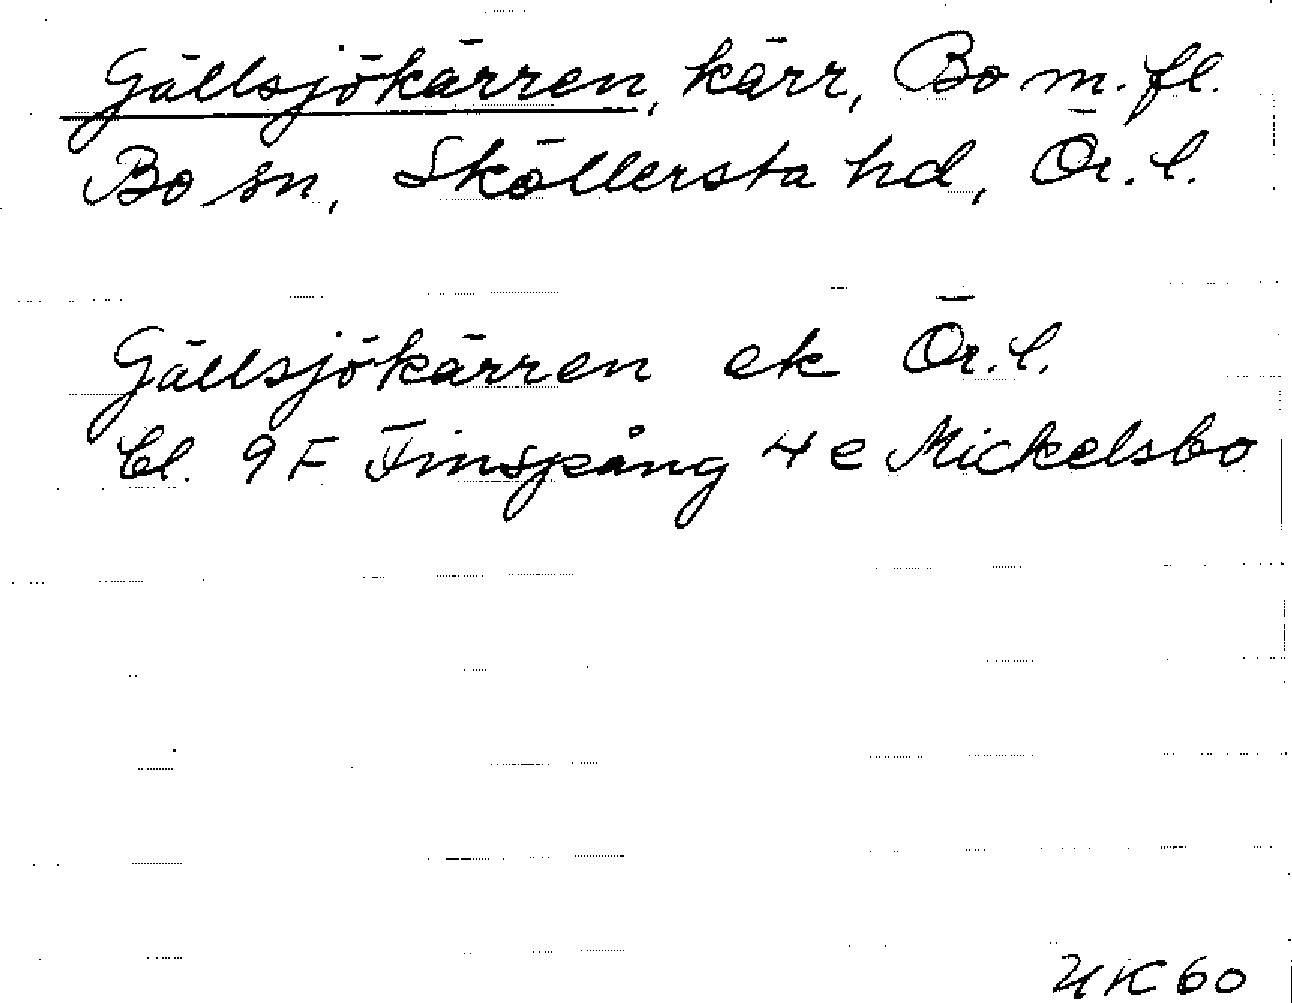 Gällsjökärren, kärr, Bo m.fl.
Bo sn, Sköllersta hd, Ör.l.
Gällsjökärren ek Ör.l.
bl. 9F Finspång 4e Mickelsbo
60